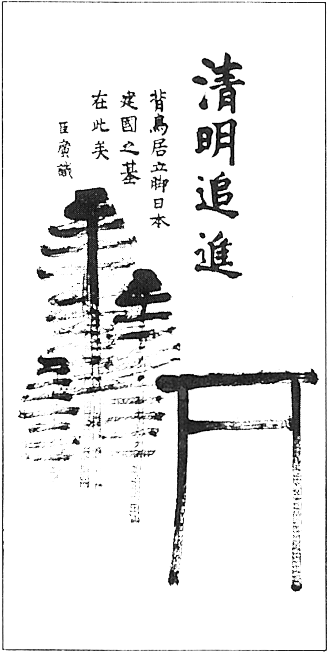 清明追進
背鳥居立脚日本
建國之基
在此矣
臣寅識